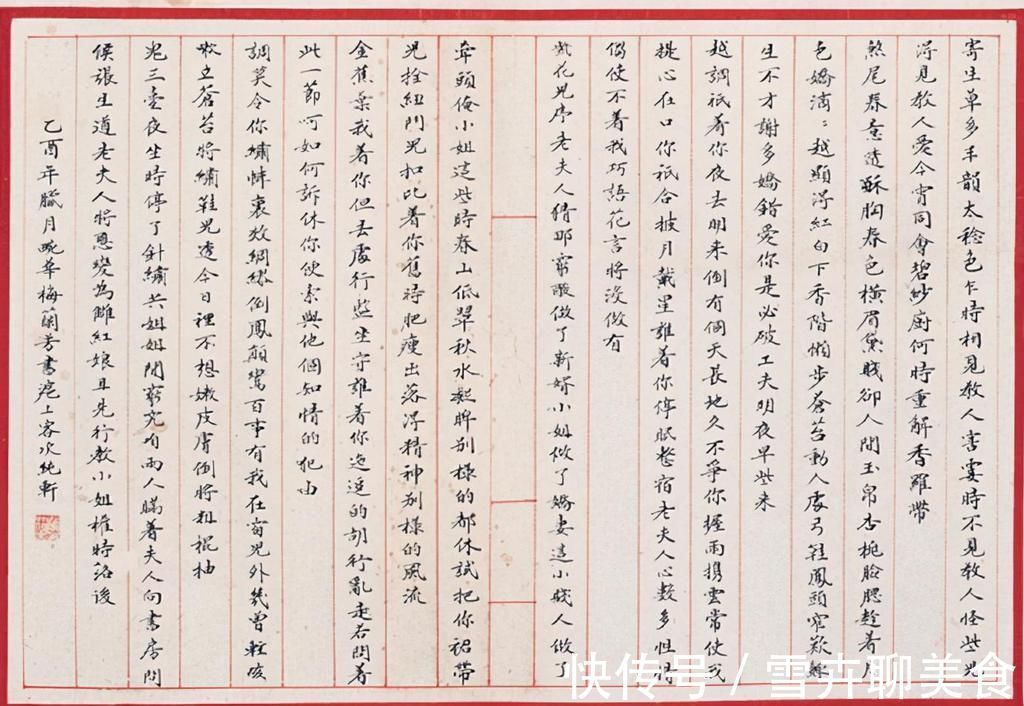 寄生草多丰韻太稔色乍時相見教人害霎時不見教人怪些兒
得見教人愛今宵同會碧紗厨何時重解香羅帶
煞尾春意透酥胸春色橫眉黛賤卻人間玉帛杏桃臉腮趁着月
色嬌滴〻越顯得紅白下香階懶步蒼苔動人處弓鞋鳳頭窄歎鯫
生不才謝多嬌錯愛你是必破工夫明夜早些来
越調祇着你夜去明来倒有個天長地久不爭你握雨携雲常使我
提心在口你祇合披月戴星誰着你停眠整宿老夫人心數多性情
㑳使不着我巧語花言將沒做有
紫花兒序老夫人猜那窮酸做了新婿小姐做了嬌妻這小賤人做了
牽頭俺小姐這些時春山低翠秋水凝眸别樣的都休試把你裙带
兒拴紐門兒扣比着你舊時肥瘦出落得精神别樣的風流
金蕉葉我着你但去處行監坐守誰着你迤逗的胡行亂走若問着
此一節呵如何訴休你便索與他個知情的犯由
調笑令你繡幃裏效綢繆倒鳳顛鸞百事有我在窗兒外幾曾輕咳
嗽立蒼苔將繡鞋兒透今日裡不想嫩皮膚倒將粗棍抽
鬼三臺夜坐時停了針繡共姐姐閒窮究兩人瞞着夫人向書房問
侯張生道老夫人將恩變為讎紅娘且先行教小姐權時落後
乙酉年臘月畹華梅蘭芳書滬上客次純軒
快传号 / 雪卉聊美食